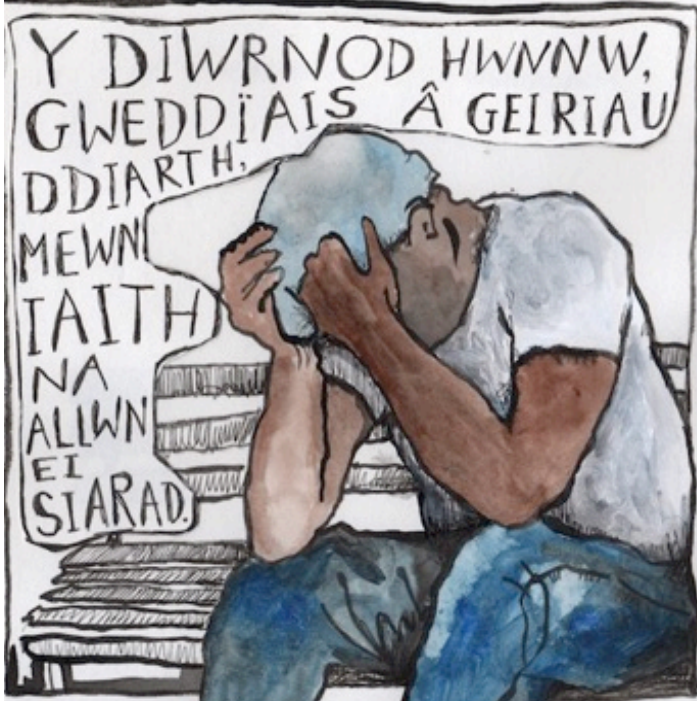 Y DIWRNOD HWNNW,
GWEDDÏAIS Â GEIRIAU
DDIARTH,
MEWN
IAITH
NA
ALLWN
EI
SIARAD.